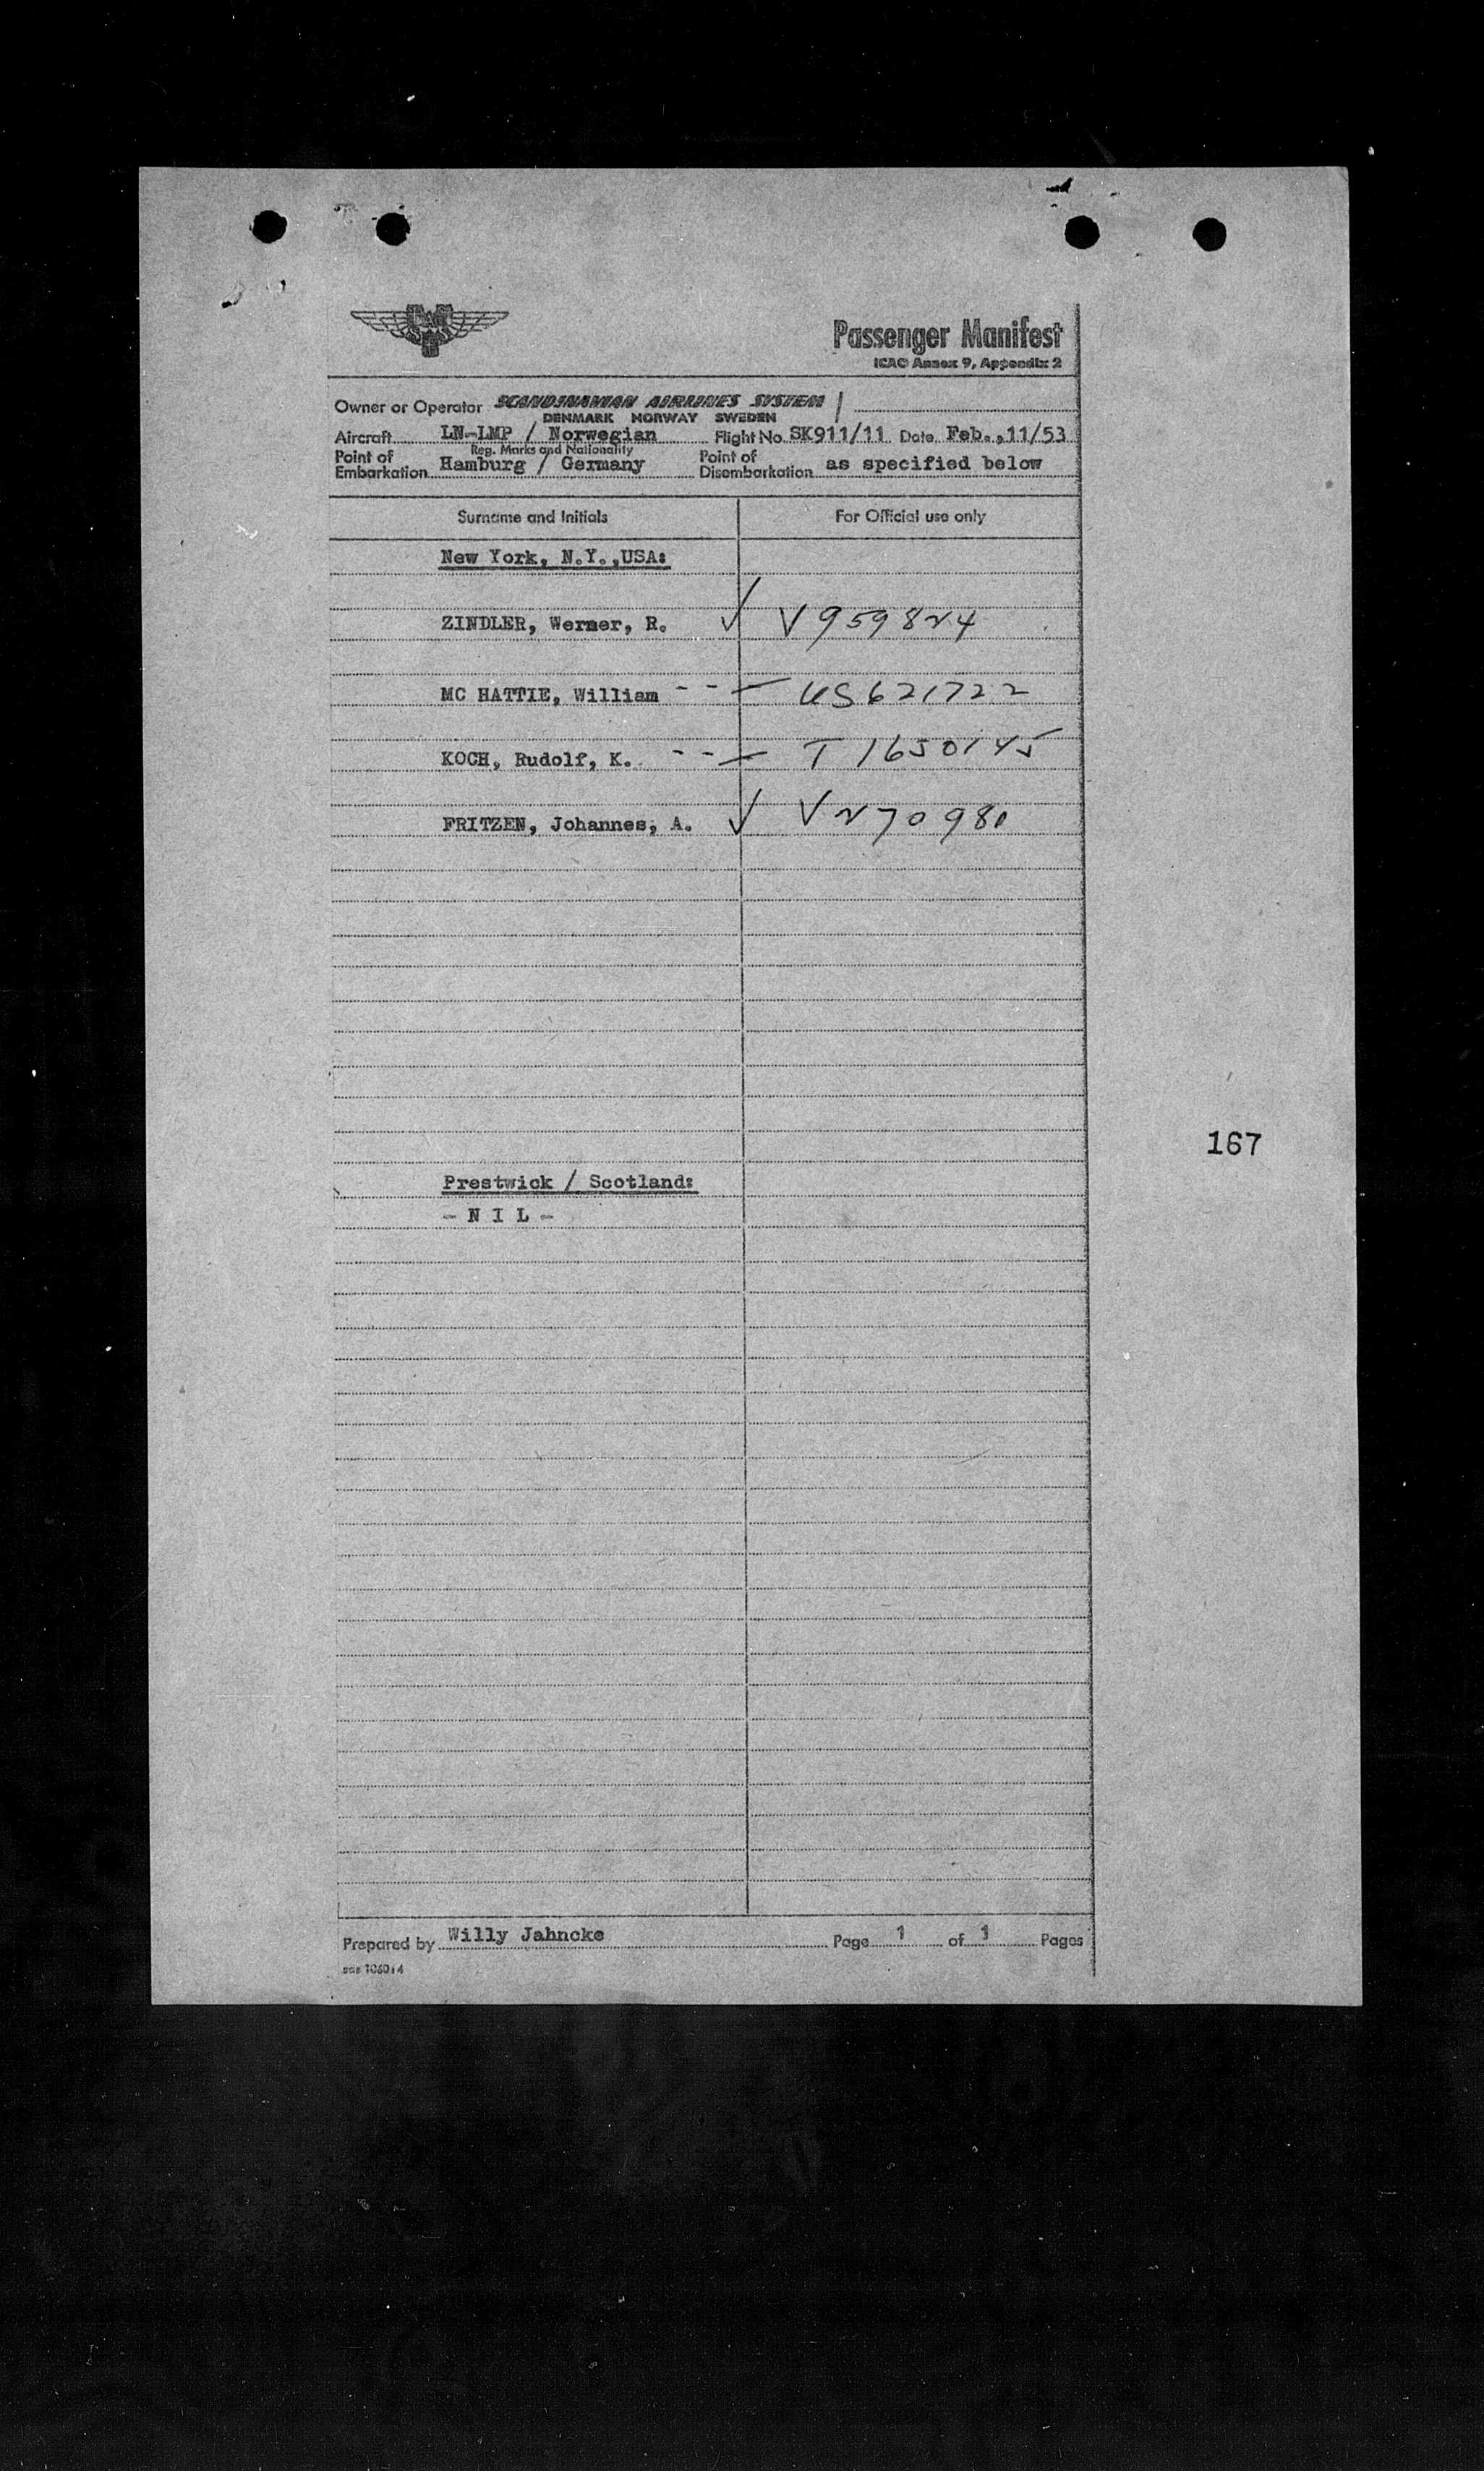 SAS
Passenger Manifest
ICAO Annex 9, Appendix 2
Owner or Operator SCANDINAVIAN AIRLINES SYSTEM
DENMARK NORWAY SWEDEN
Aircraft LN-LMP / Norwegian Flight No. SK911/11 Date Feb.,11/53
Reg. Marks and Nationality
Point of Embarkation Hamburg / Germany Point of Disembarkation as specified below
Surname and Initials For Official use only
New York, N.Y.,USA:
ZINDLER, Werner, R. ✓ V959824
MC HATTIE, William - - — US621722
KOCH, Rudolf, K. - - — T 1650145
FRITZEN, Johannes, A. ✓ V270980
167
Prestwick / Scotland:
- N I L -
Prepared by Willy Jahncke Page 1 of 1 Pages
sas 10601 4